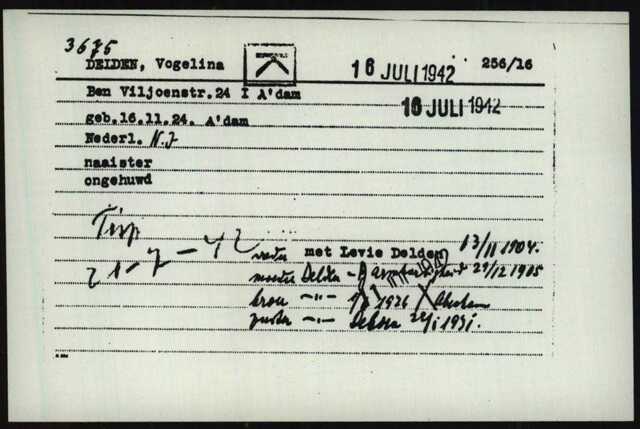 3675
DELDEN, Vogelina 16 JULI 1942 256/16
Ben Viljoenstr.24 I A'dam 16 JULI 1942
geb.16.11.24. A'dam
Nederl. N.J
naaister
ongehuwd
Trsp
21-7-42
vader met Levie Delden 13/11 1904.
moeder Delden - 29/12 1905
broer -"- 1926 Abraham
zuster -"- Debora 1931.